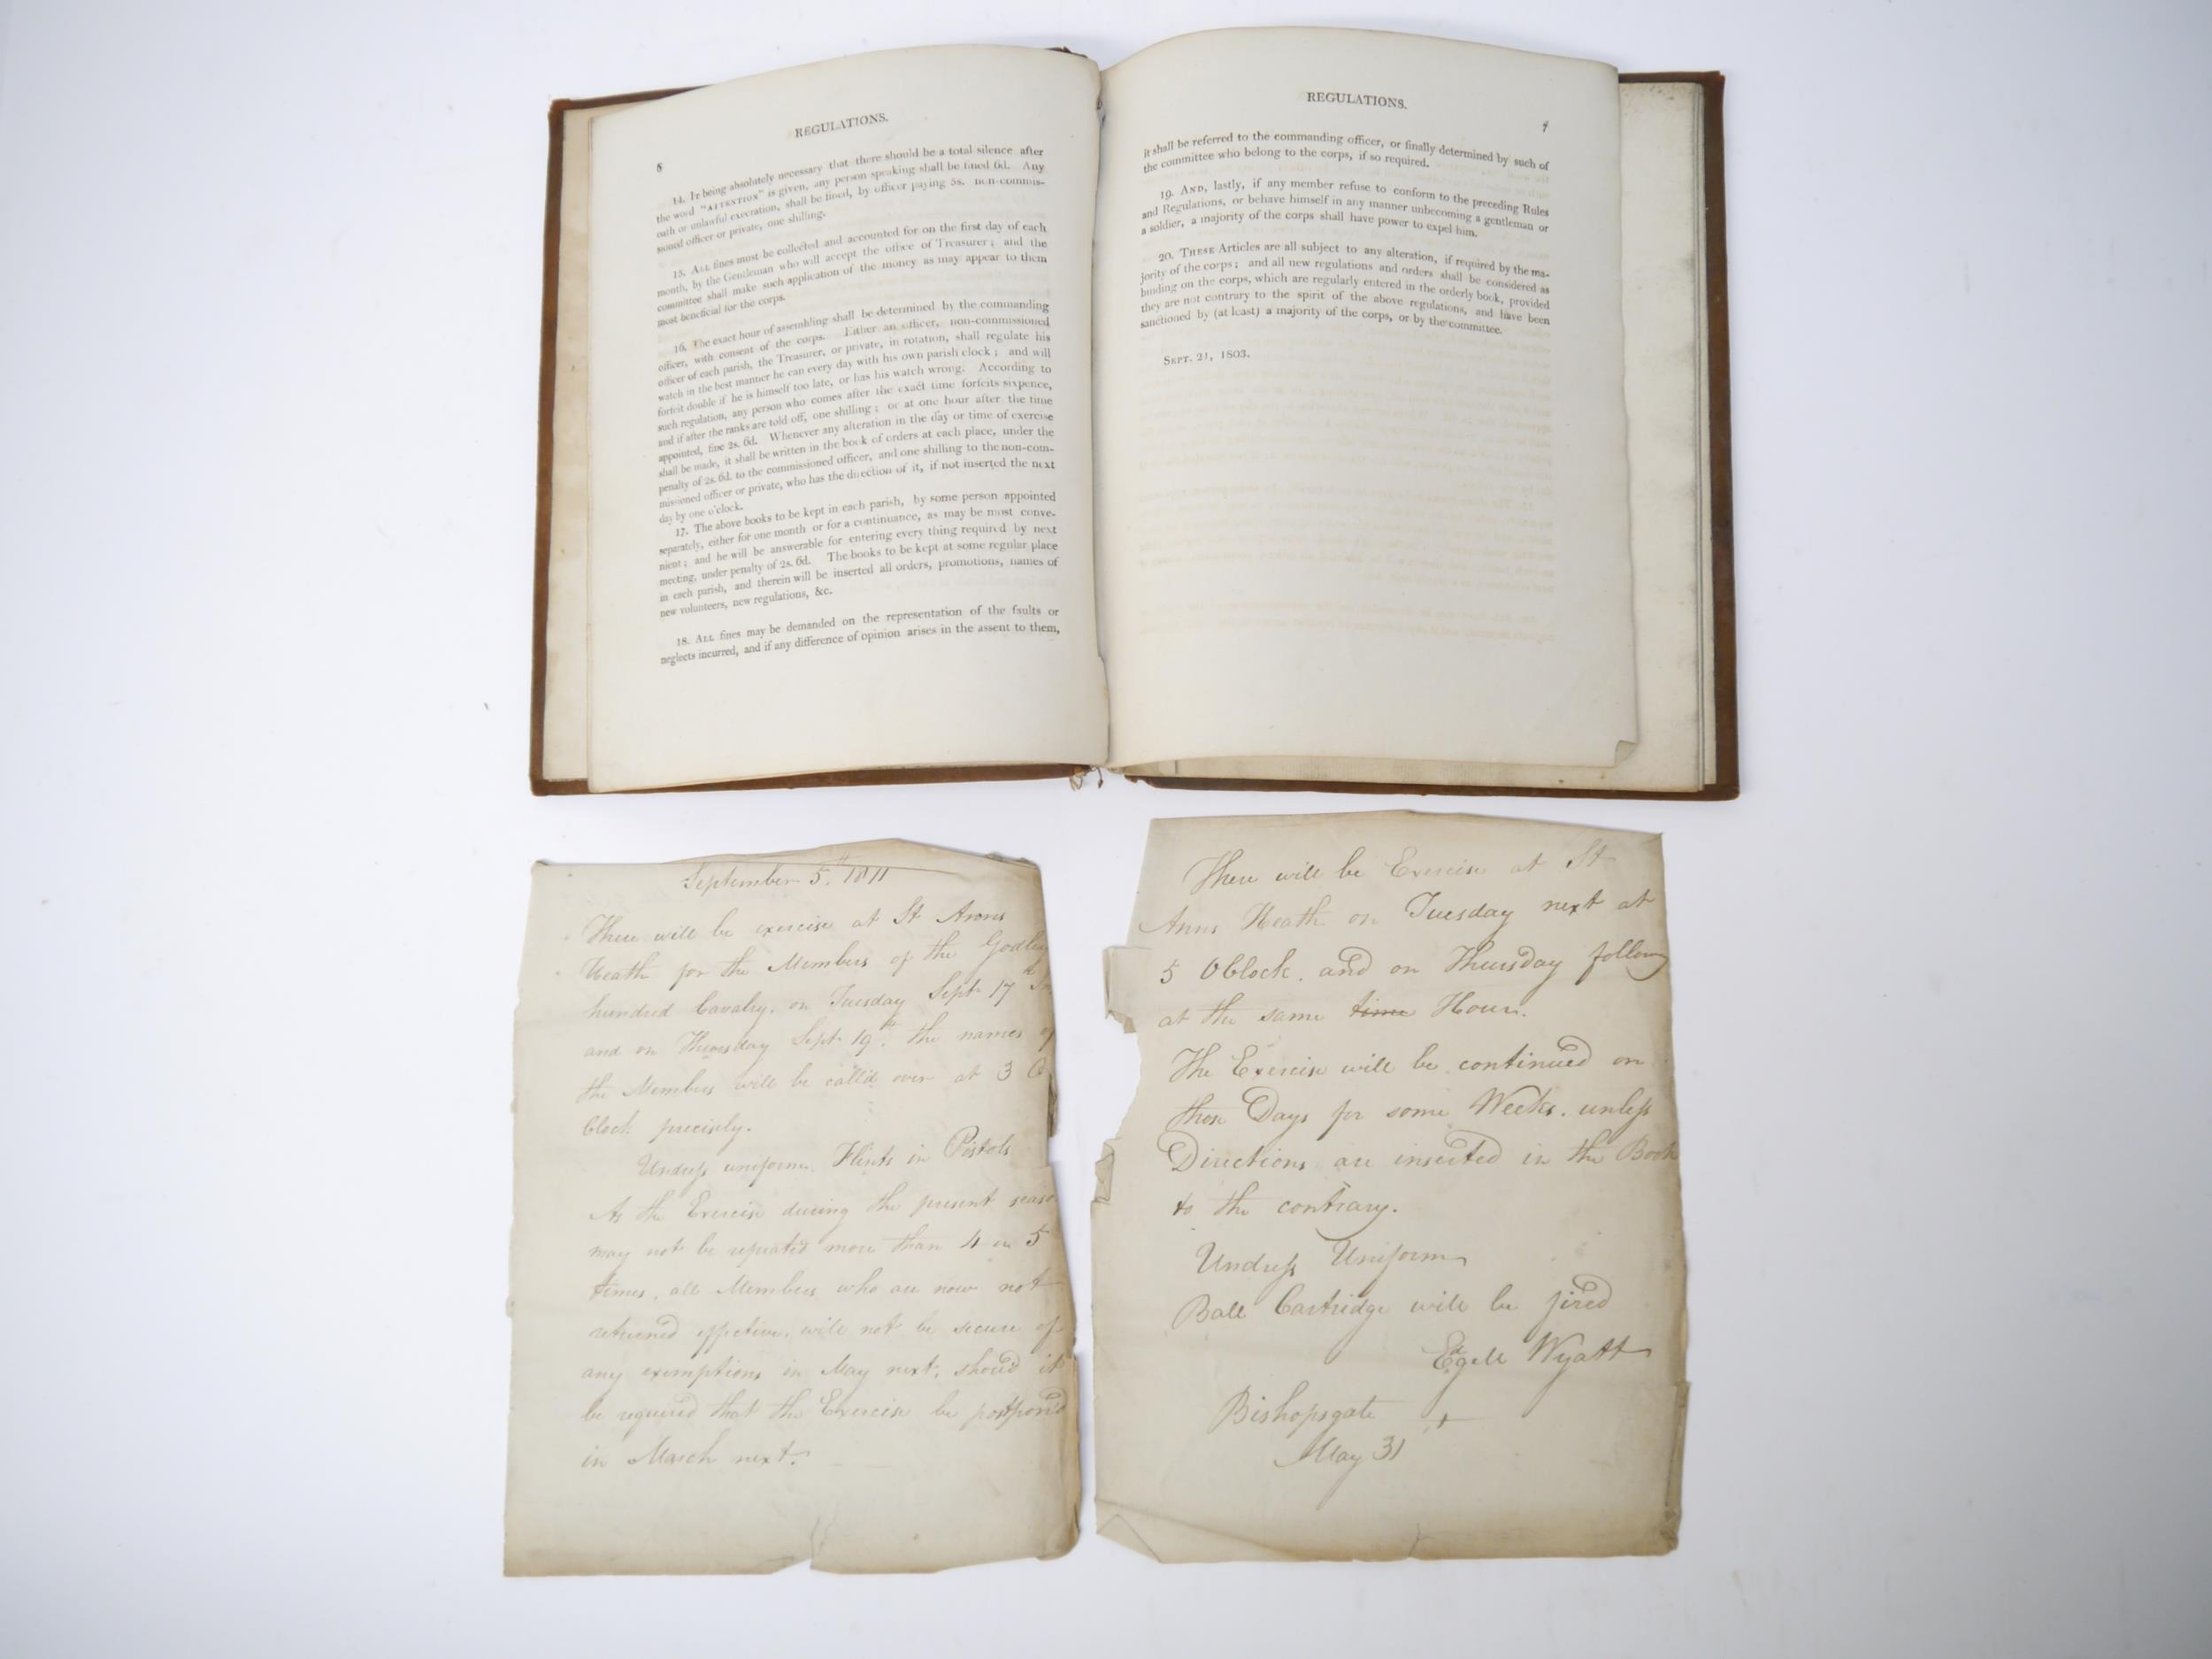 REGULATIONS.
8
14. It being absolutely necessary that there should be a total silence after
the word "ATTENTION" is given, any person speaking shall be fined 6d. Any
oath or unlawful execration, shall be fined, by officer paying 5s. non-commis-
sioned officer or private, one shilling.
15. ALL fines must be collected and accounted for on the first day of each
month, by the Gentleman who will accept the office of Treasurer; and the
committee shall make such application of the money as may appear to them
most beneficial for the corps.
16. The exact hour of assembling shall be determined by the commanding
officer, with consent of the corps. Either an officer, non-commissioned
officer of each parish, the Treasurer, or private, in rotation, shall regulate his
watch in the best manner he can every day with his own parish clock; and will
forfeit double if he is himself too late, or has his watch wrong. According to
such regulation, any person who comes after the exact time forfeits sixpence,
and if after the ranks are told off, one shilling; or at one hour after the time
appointed, fine 2s. 6d. Whenever any alteration in the day or time of exercise
shall be made, it shall be written in the book of orders at each place, under the
penalty of 2s. 6d. to the commissioned officer, and one shilling to the non-com-
missioned officer or private, who has the direction of it, if not inserted the next
day by one o'clock.
17. The above books to be kept in each parish, by some person appointed
separately, either for one month or for a continuance, as may be most conve-
nient; and he will be answerable for entering every thing required by next
meeting, under penalty of 2s. 6d. The books to be kept at some regular place
in each parish, and therein will be inserted all orders, promotions, names of
new volunteers, new regulations, &c.
18. ALL fines may be demanded on the representation of the faults or
neglects incurred, and if any difference of opinion arises in the assent to them,
REGULATIONS.
it shall be referred to the commanding officer, or finally determined by such of
the committee who belong to the corps, if so required.
19. AND, lastly, if any member refuse to conform to the preceding Rules
and Regulations, or behave himself in any manner unbecoming a gentleman or
a soldier, a majority of the corps shall have power to expel him.
20. THESE Articles are all subject to any alteration, if required by the ma-
jority of the corps; and all new regulations and orders shall be considered as
binding on the corps, which are regularly entered in the orderly book, provided
they are not contrary to the spirit of the above regulations, and have been
sanctioned by (at least) a majority of the corps, or by the committee.
SEPT. 21, 1803.
September 5th 1811
There will be exercise at St Anns
Heath for the Members of the Godley
hundred Cavalry, on Tuesday Sept 17th
and on Thursday Sept 19th. the names of
the Members will be call'd over at 3 O
Clock precisely.
Undress uniform. Flints in Pistols
As the Exercise during the present seaso
may not be repeated more than 4 or 5
times, all Members who are now not
returned effective, will not be secure of
any exemptions in May next, should it
be required that the Exercise be postpon'd
in March next.
There will be Exercise at St
Anns Heath on Tuesday next at
5 OClock. and on Thursday follow
at the same time Hour.
The Exercise will be continued on
those Days for some Weeks. unless
Directions are inserted in the Book
to the contrary.
Undress Uniform
Ball Cartridge will be fired
Edgell Wyatt
Bishopsgate
May 31